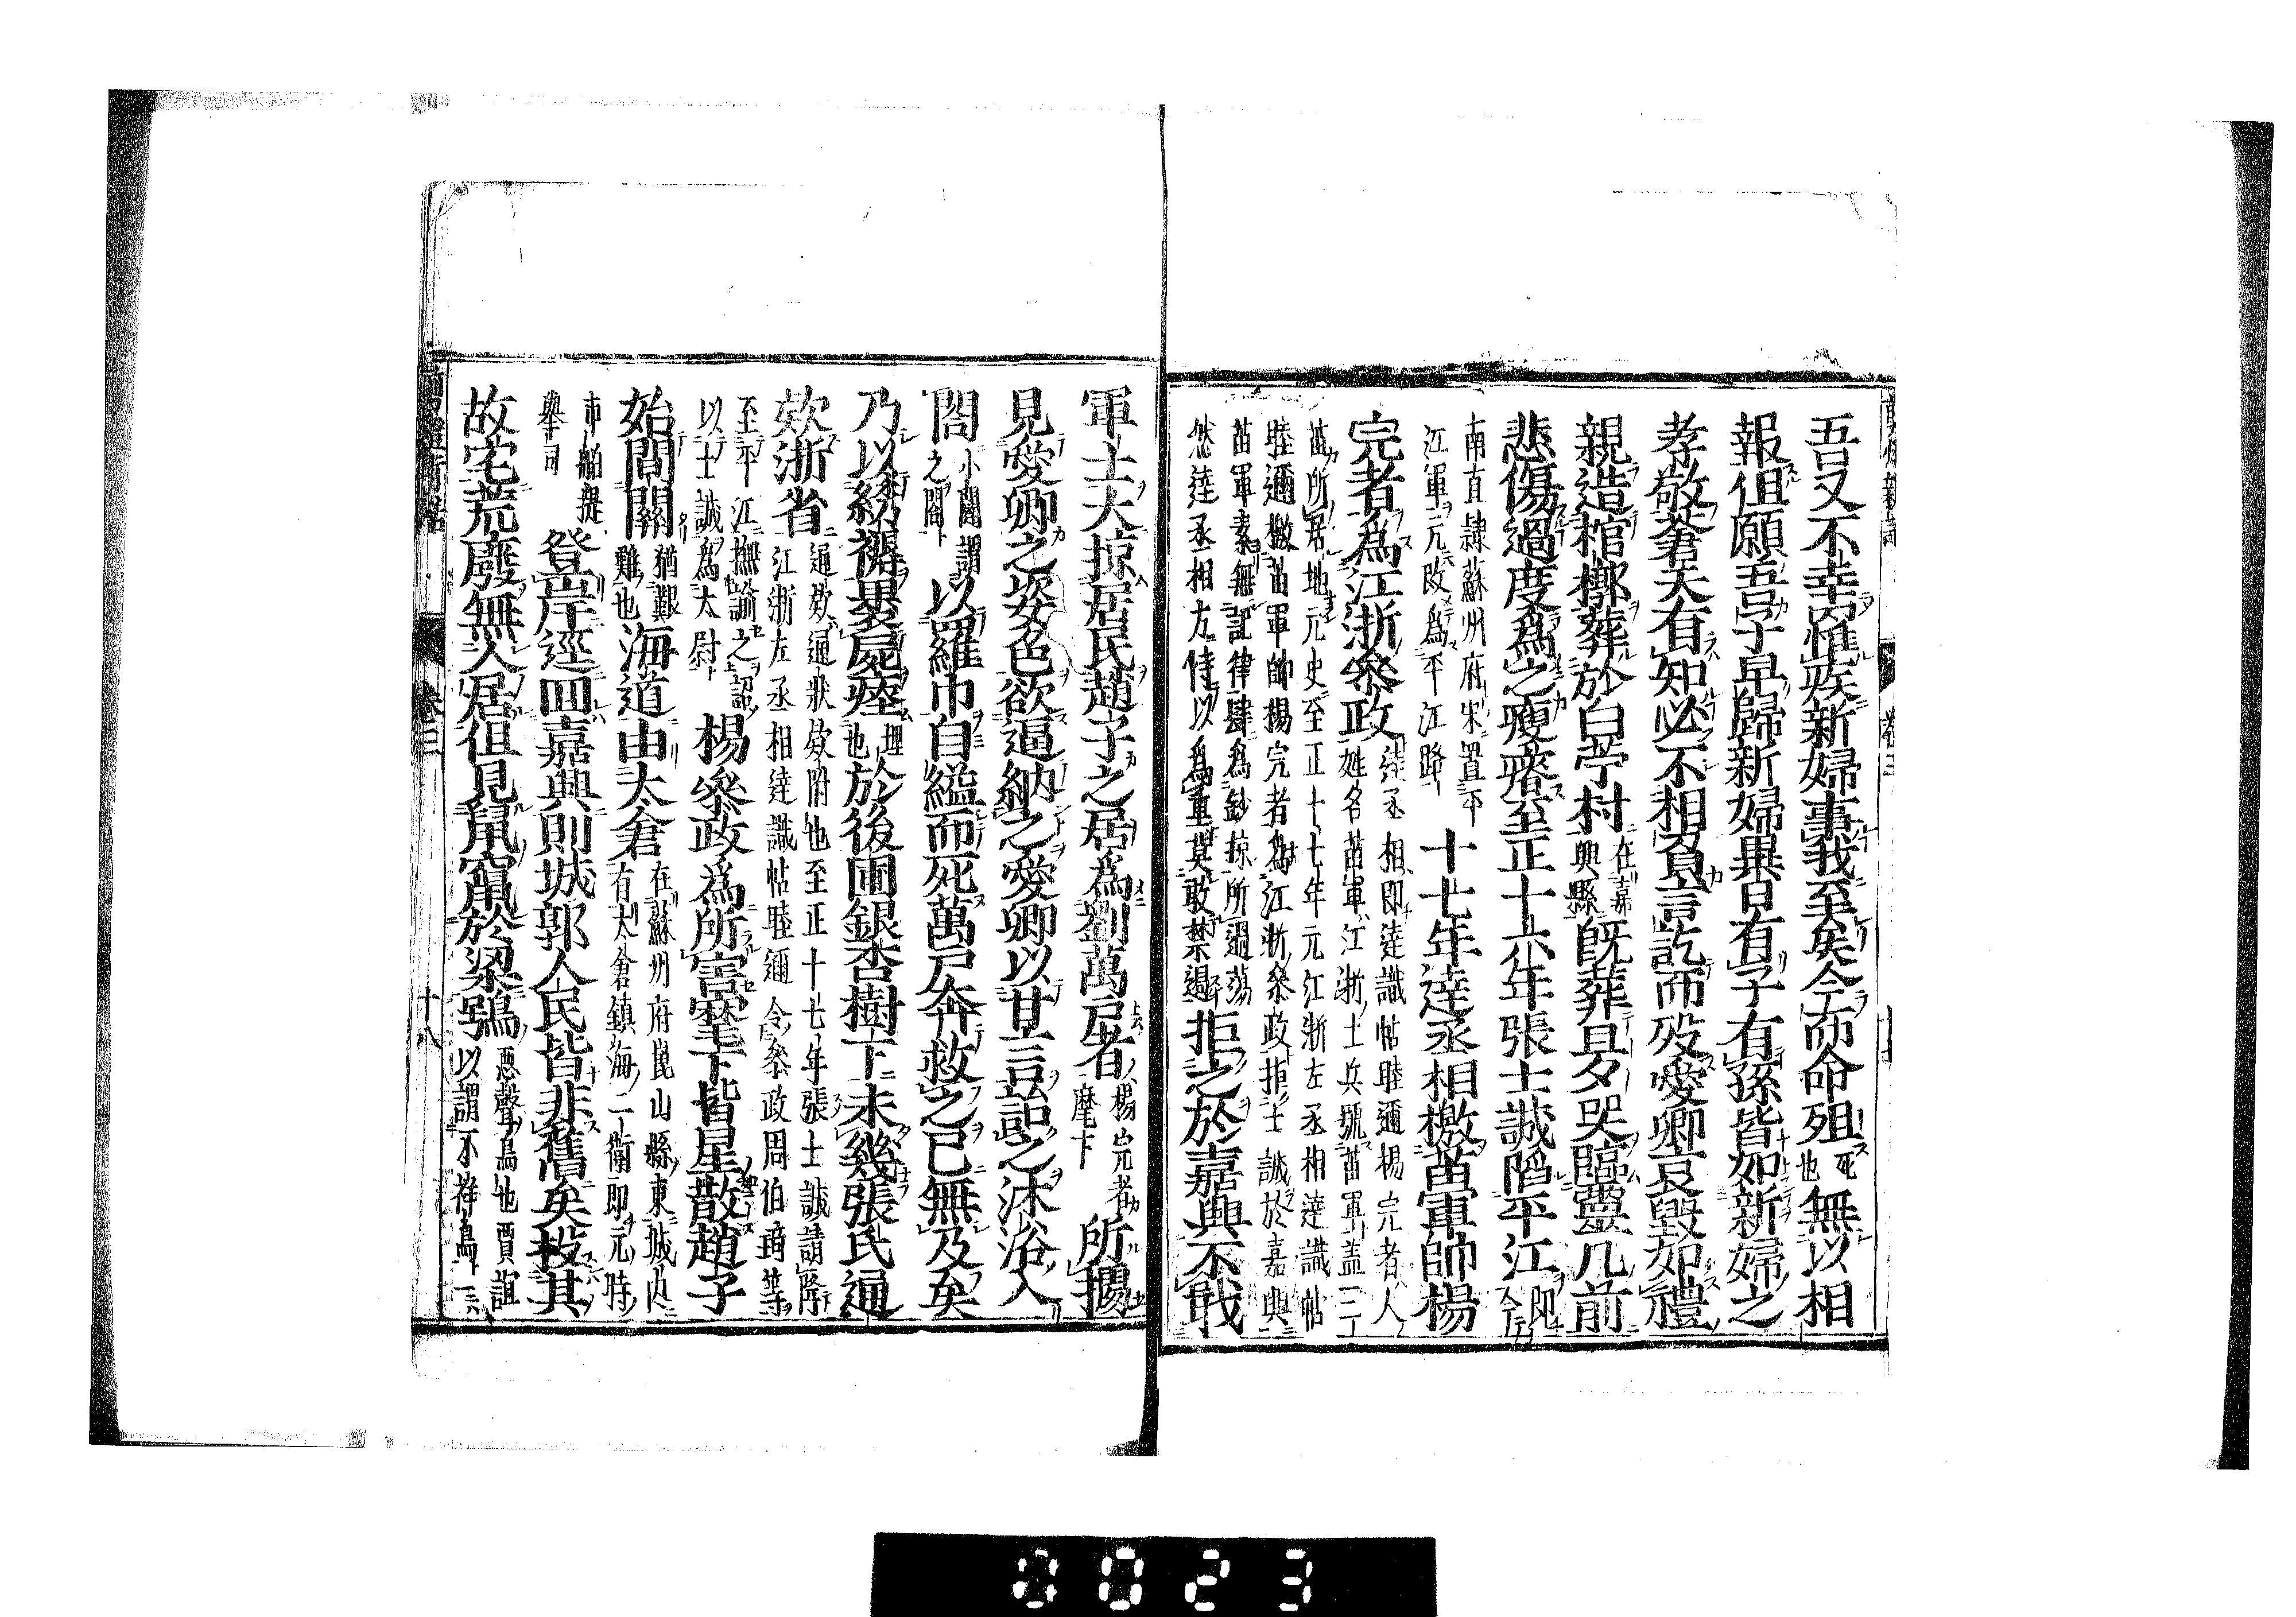 吾又不幸罹疾新婦事我至矣今而命殂死也無以相
報但願吾子早歸新婦異日有子有孫皆如新婦之
孝敬蒼天有知必不相負言訖而歿愛卿哀毀如禮
親造棺槨葬於白苧村在嘉興縣既葬旦夕哭臨靈几前
悲傷過度爲之瘦瘠至正十六年張士誠陷平江即今
南直隷蘇州府宋置平江軍元改爲平江路十七年達丞相檄苗軍帥楊
完者爲江浙參政達丞相即達識帖睦邇楊完者人姓名苗軍江浙土兵號苗軍盖三
苗所居地元史至正十七年元江浙左丞相達識帖
睦邇檄苗軍帥楊完者爲江浙參政拒士誠於嘉興
苗軍素無記律肆爲鈔掠所過蕩
然達丞相方倚以爲重莫敢禁遏拒之於嘉興不戢
軍士大掠居民趙子之居爲劉萬戶者楊完者麾下所據
見愛卿之姿色欲逼納之愛卿以甘言紿之沐浴入
閤小閨謂之閤以羅巾自縊而死萬戶奔救之已無及矣
乃以綉褥裹屍瘞埋也於後圃銀杏樹下未幾張氏通
欵浙省通欵通狀欵附也至正十七年張士誠請降江浙左丞相達識帖睦邇令參政周伯琦等
至平江撫諭之詔以士誠爲太尉楊參政爲所害麾下皆星散趙子
始間關猶艱難也海道由太倉在蘇州府崑山縣東城内有太倉鎮海二衛即元時
市舶提舉司登岸逕回嘉興則城郭人民皆非舊矣投其
故宅荒廢無人居但見鼠竄於梁鴞惡聲鳥也賈誼以謂不祥鳥
卷三
十八
0023